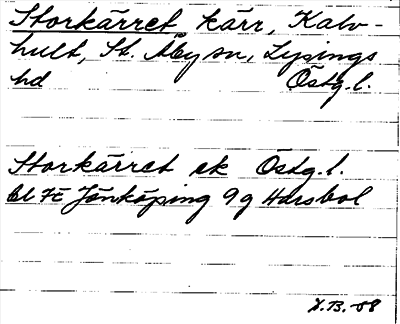 Storkärret kärr, Kalv-
hult, St. Åby sn, Lysings
hd Östg.l.
Storkärret ek Östg.l.
bl Jönköping 9g Harsbol